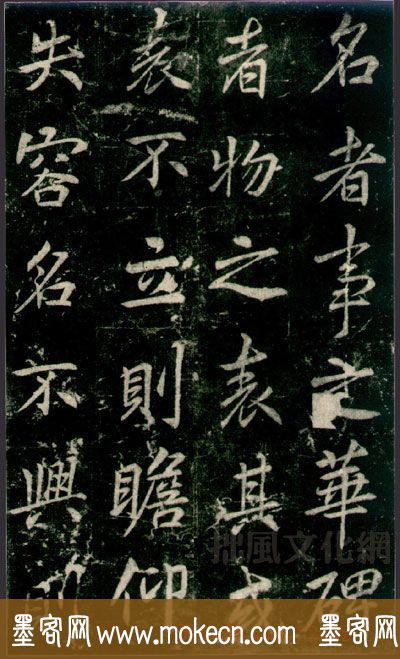 名者事之華碑
者物之表其或
表不立則瞻仰
失容名不興則
拙風文化網
墨客网 www.mokecn.com 墨客网